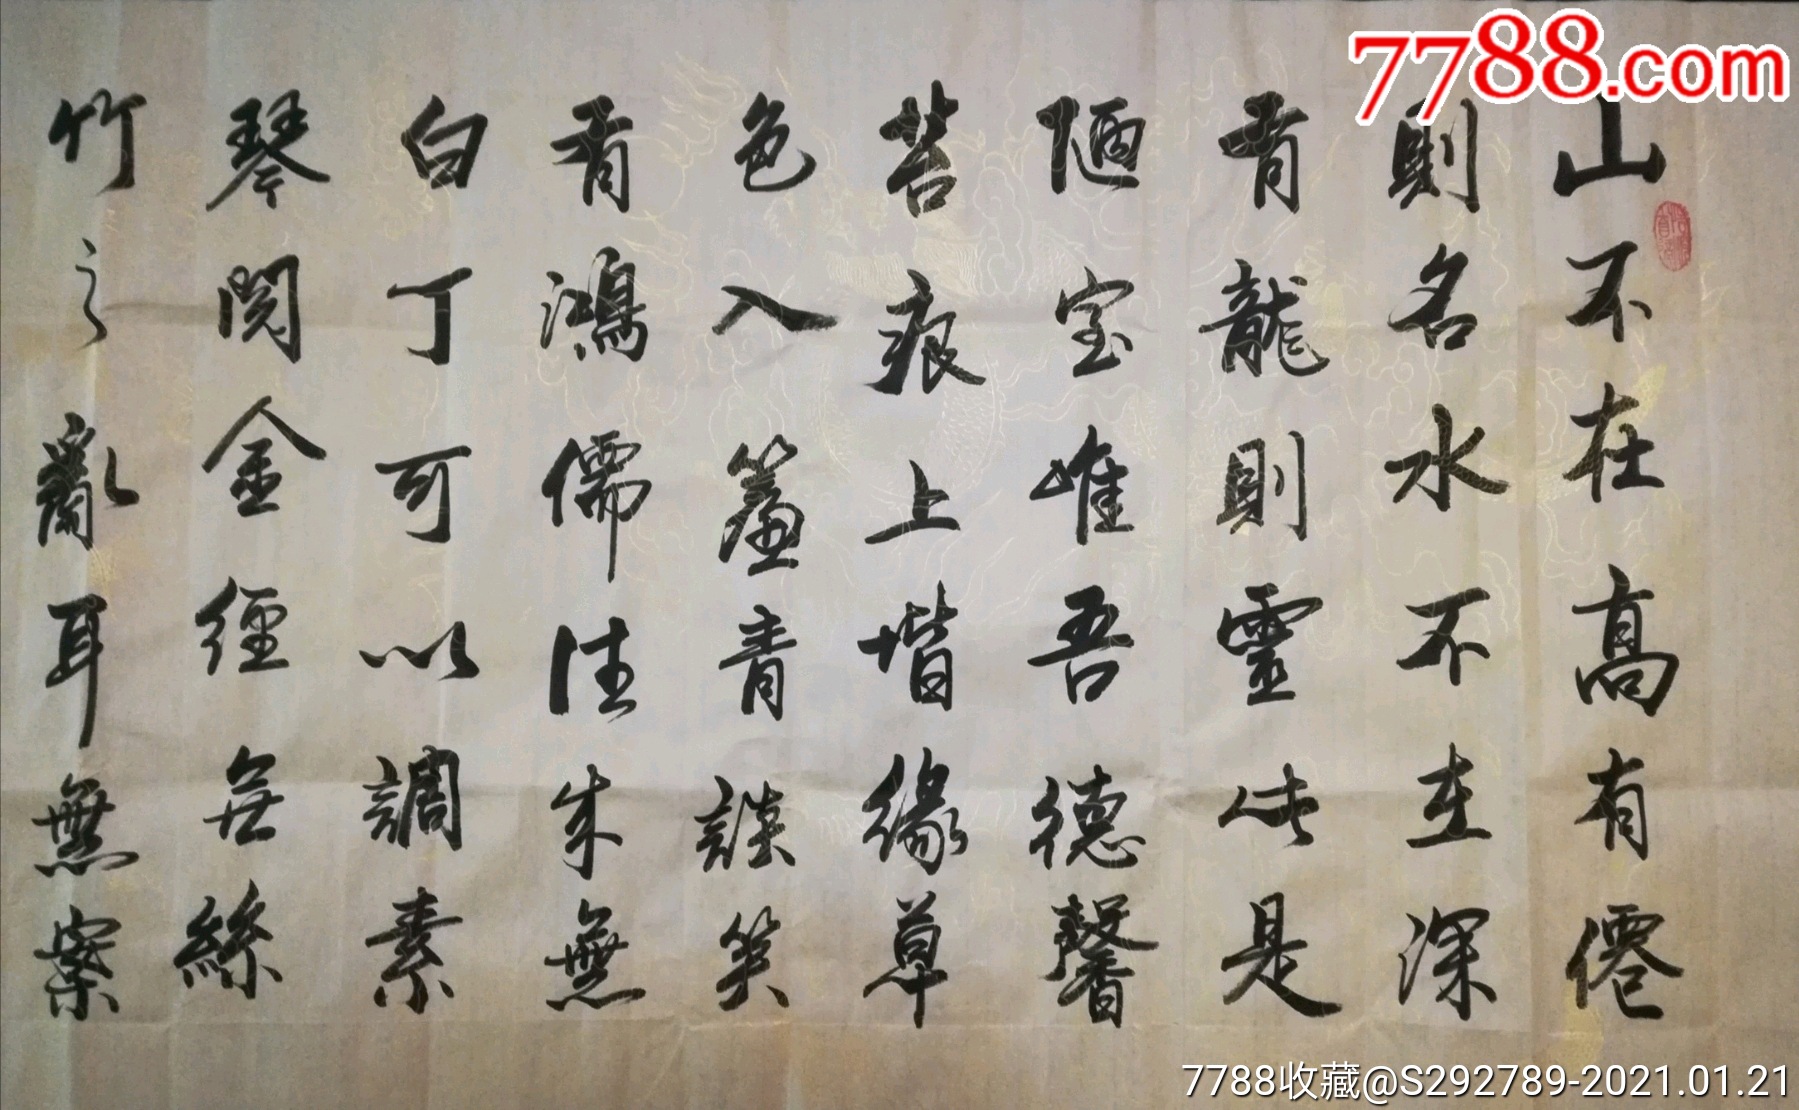 7788.com
山不在高有僊
則名水不在深
有龍則靈此是
陋室惟吾德馨
苔痕上堦緣草
色入簾青談笑
有鴻儒往来無
白丁可以調素
琴閱金經無絲
竹之亂耳無案
7788收藏@S292789-2021.01.21